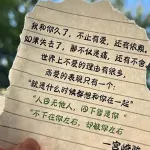 我和你久了,不止有爱,还有依赖,
如果失去了,那不仅是痛,还有不舍
世界上不爱的理由有很多,
而爱的表现只有一个:
"就是什么时候都想和你在一起"
"人后无他人,心下皆是你"
"不下在你左右,
—宫崎骏